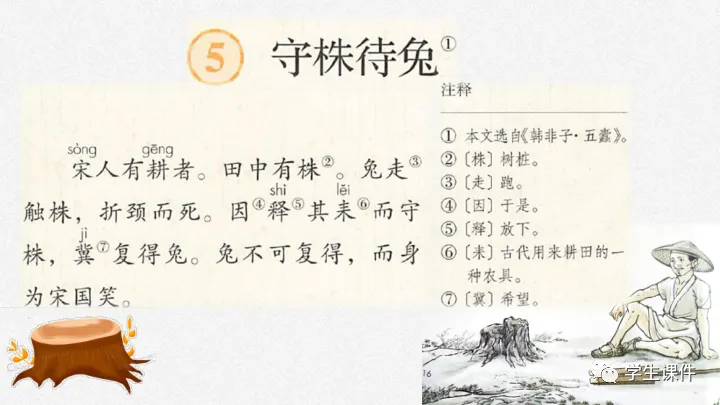 5 守株待兔①
注释
sòng gēng
宋人有耕者。田中有株②。兔走③
shì lěi
触株，折颈而死。因④释⑤其耒⑥而守
jì
株，冀⑦复得兔。兔不可复得，而身
为宋国笑。
① 本文选自《韩非子·五蠹》。
②〔株〕树桩。
③〔走〕跑。
④〔因〕于是。
⑤〔释〕放下。
⑥〔耒〕古代用来耕田的一
种农具。
⑦〔冀〕希望。
16
学生课件